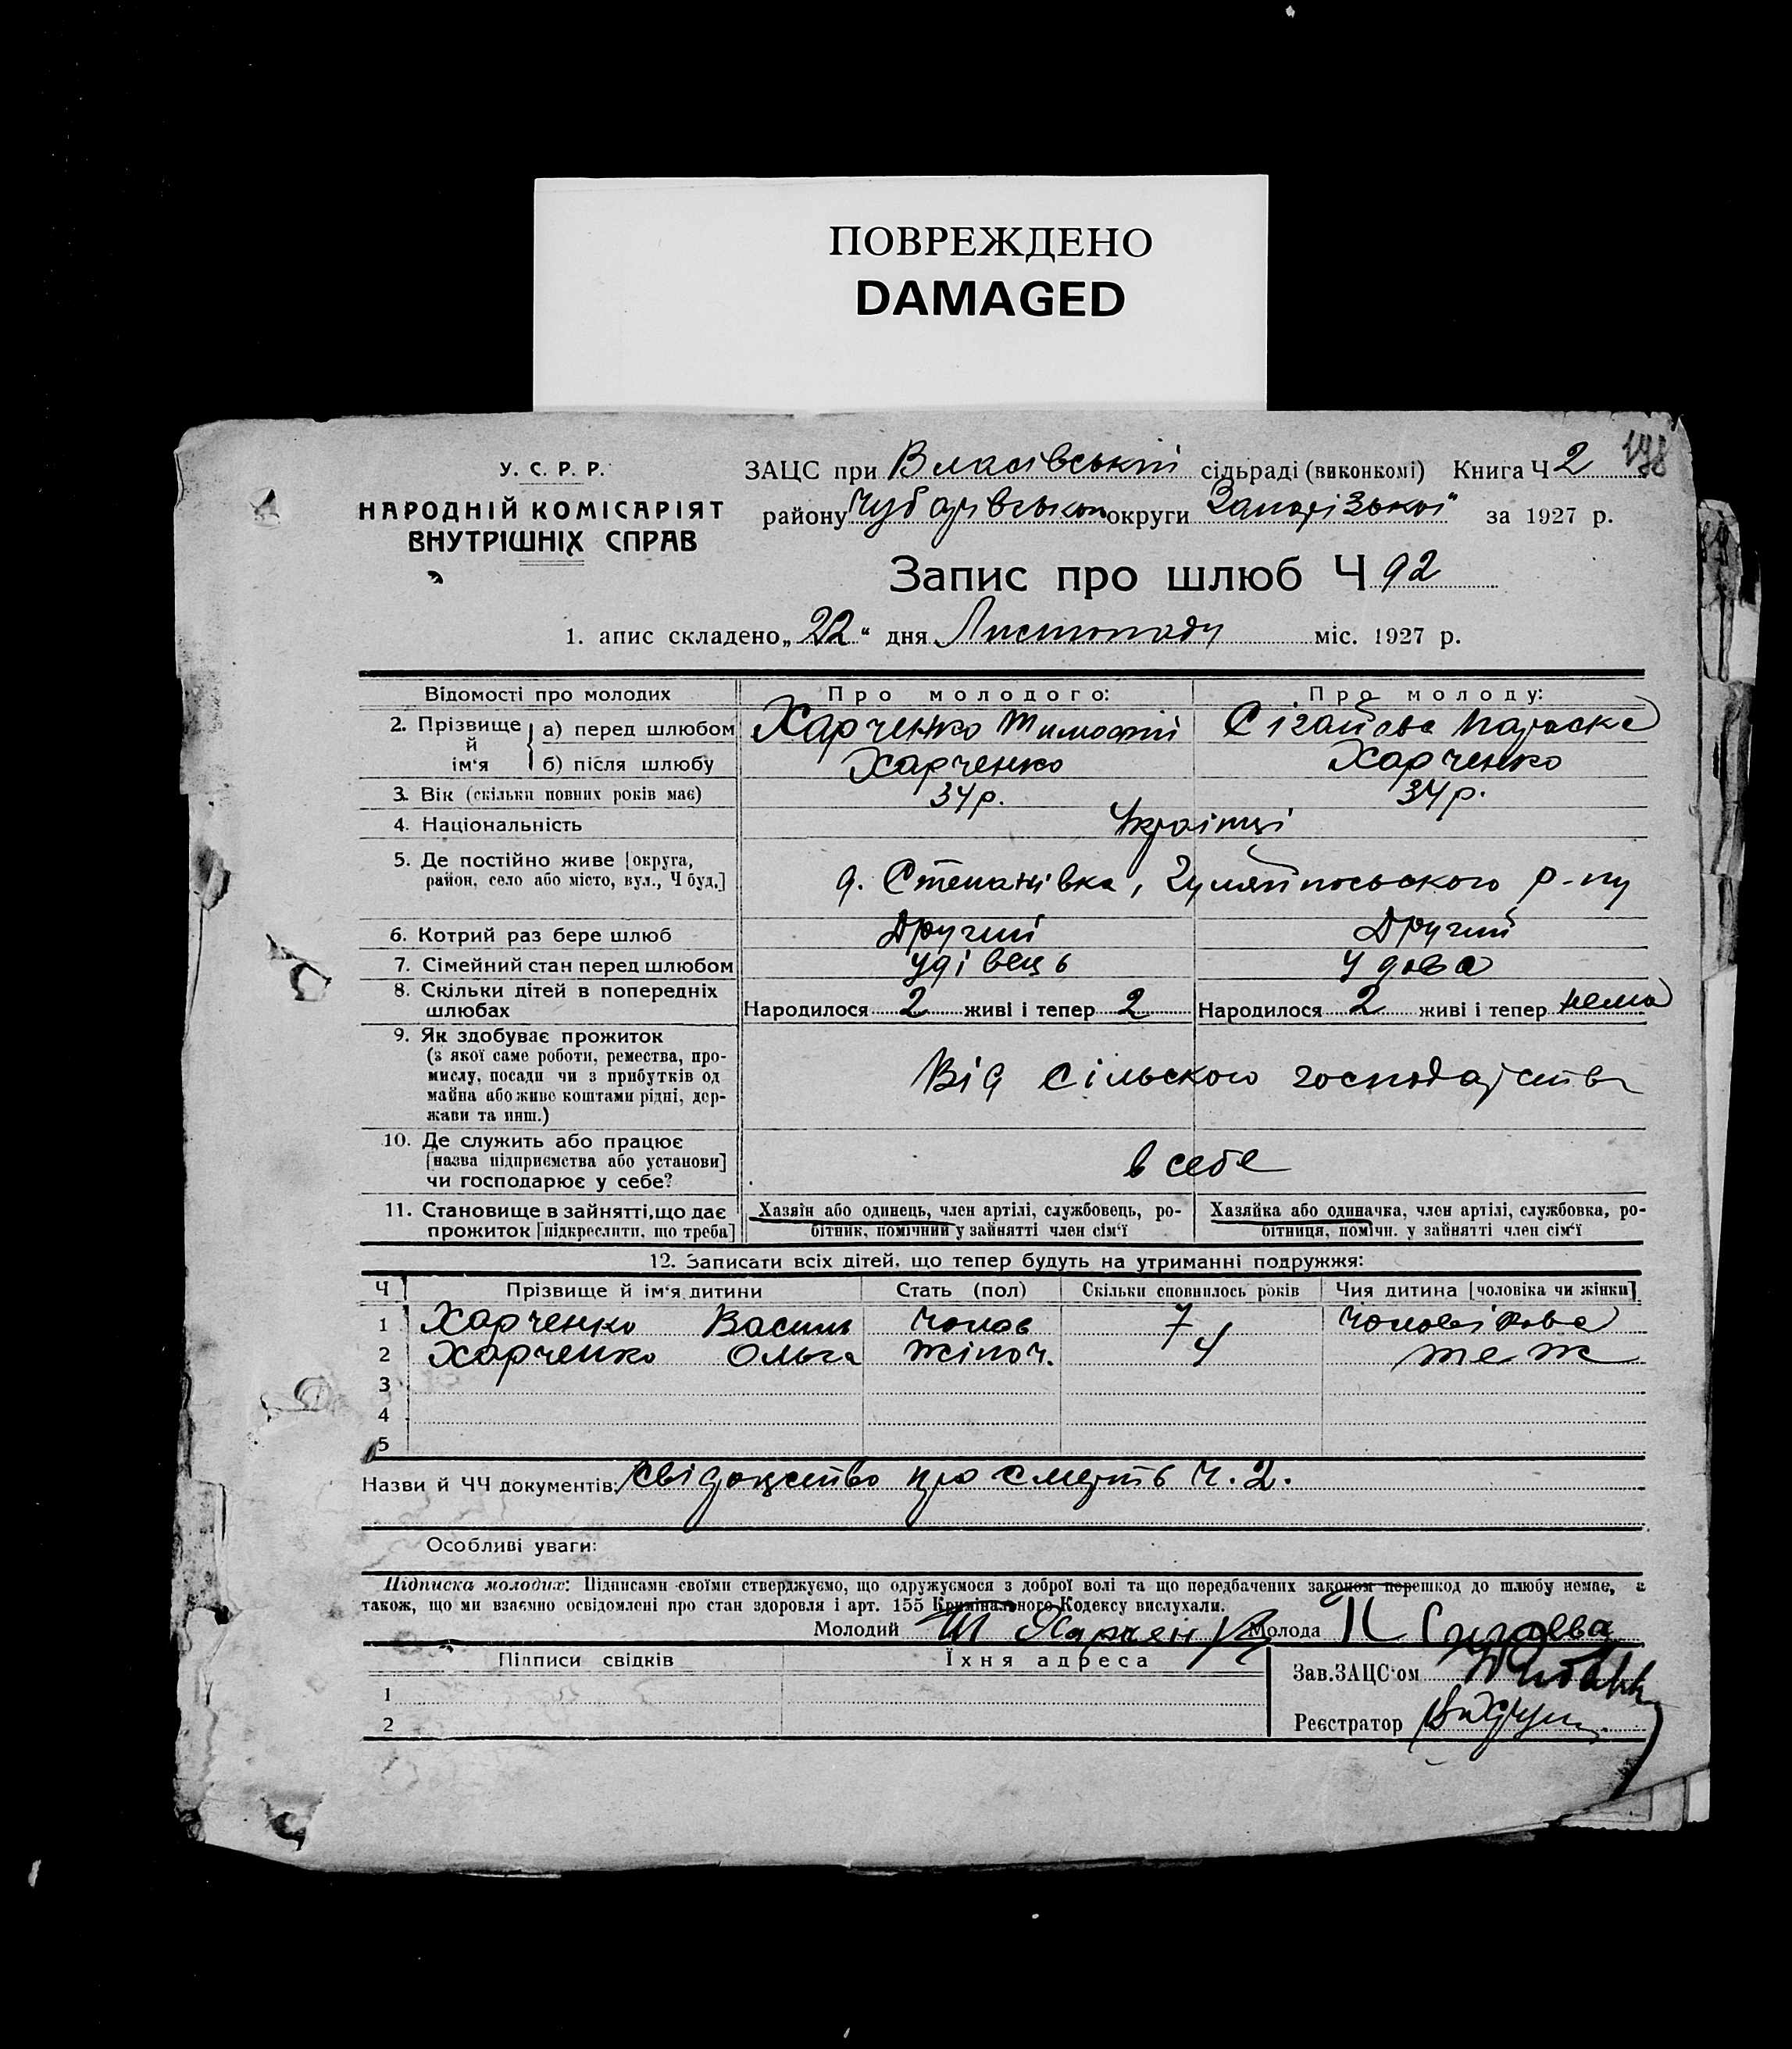 ПОВРЕЖДЕНО
DAMAGED
198
У. С. Р. Р.
НАРОДНІЙ КОМІСАРІЯТ
ВНУТРІШНІХ СПРАВ
ЗАЦС при Власівській сільраді (виконкомі) Книга Ч 2
району Чубарівського округи Запорізької за 1927 р.
Запис про шлюб Ч 92
1. апис складено „22“ дня Листопаду міс. 1927 р.
Відомості про молодих Про молодого: Про молоду:
2. Прізвище й ім‘я а) перед шлюбом Харченко Тимофій Сігайова Параска
б) після шлюбу Харченко Харченко
3. Вік (скільки повних років має) 34 р. 34 р.
4. Національність Українці
5. Де постійно живе [округа,
район, село або місто, вул., Ч буд.] д. Степанівка, Гуляйпольського р-ну
6. Котрий раз бере шлюб Другий Другий
7. Сімейний стан перед шлюбом Удівець Удова
8. Скільки дітей в попередніх
шлюбах Народилося 2 живі і тепер 2 Народилося 2 живі і тепер нема
9. Як здобуває прожиток
(з якої саме роботи, ремества, про-
мислу, посади чи з прибутків од
майна або живе коштами рідні, дер-
жави та инш.) Від сільського господарства
10. Де служить або працює
[назва підприємства або установи]
чи господарює у себе? в себе
11. Становище в зайнятті, що дає
прожиток [підкреслити, що треба]
Хазяїн або одинець, член артілі, службовець, ро-
бітник, помічний у зайнятті член сім‘ї
Хазяйка або одиначка, член артілі, службовка, ро-
бітниця, помічн. у зайнятті член сім‘ї
12. Записати всіх дітей, що тепер будуть на утриманні подружжя:
Ч Прізвище й ім‘я дитини Стать (пол) Скільки сповнилось років Чия дитина [чоловіка чи жінки]
1 Харченко Василь Чолов 7 Чоловікова
2 Харченко Ольга Жіноч. 4 теж
3
4
5
Назви й ЧЧ документів: Свідоцтво про смерть Ч. 2.
Особливі уваги:
Підписка молодих: Підписами своїми стверджуємо, що одружуємося з доброї волі та що передбачених законом перешкод до шлюбу немає, а
також, що ми взаємно освідомлені про стан здоровля і арт. 155 Кримінального Кодексу вислухали.
Молодий Т Харченко Молода П Сигаева
Підписи свідків Їхня адреса
1
2
Зав. ЗАЦС‘ом
Реєстратор